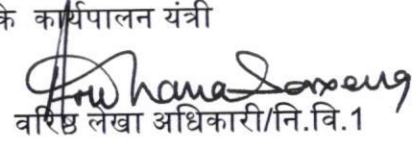 के कार्यपालन यंत्री
वरिष्ठ लेखा अधिकारी/नि.वि.1